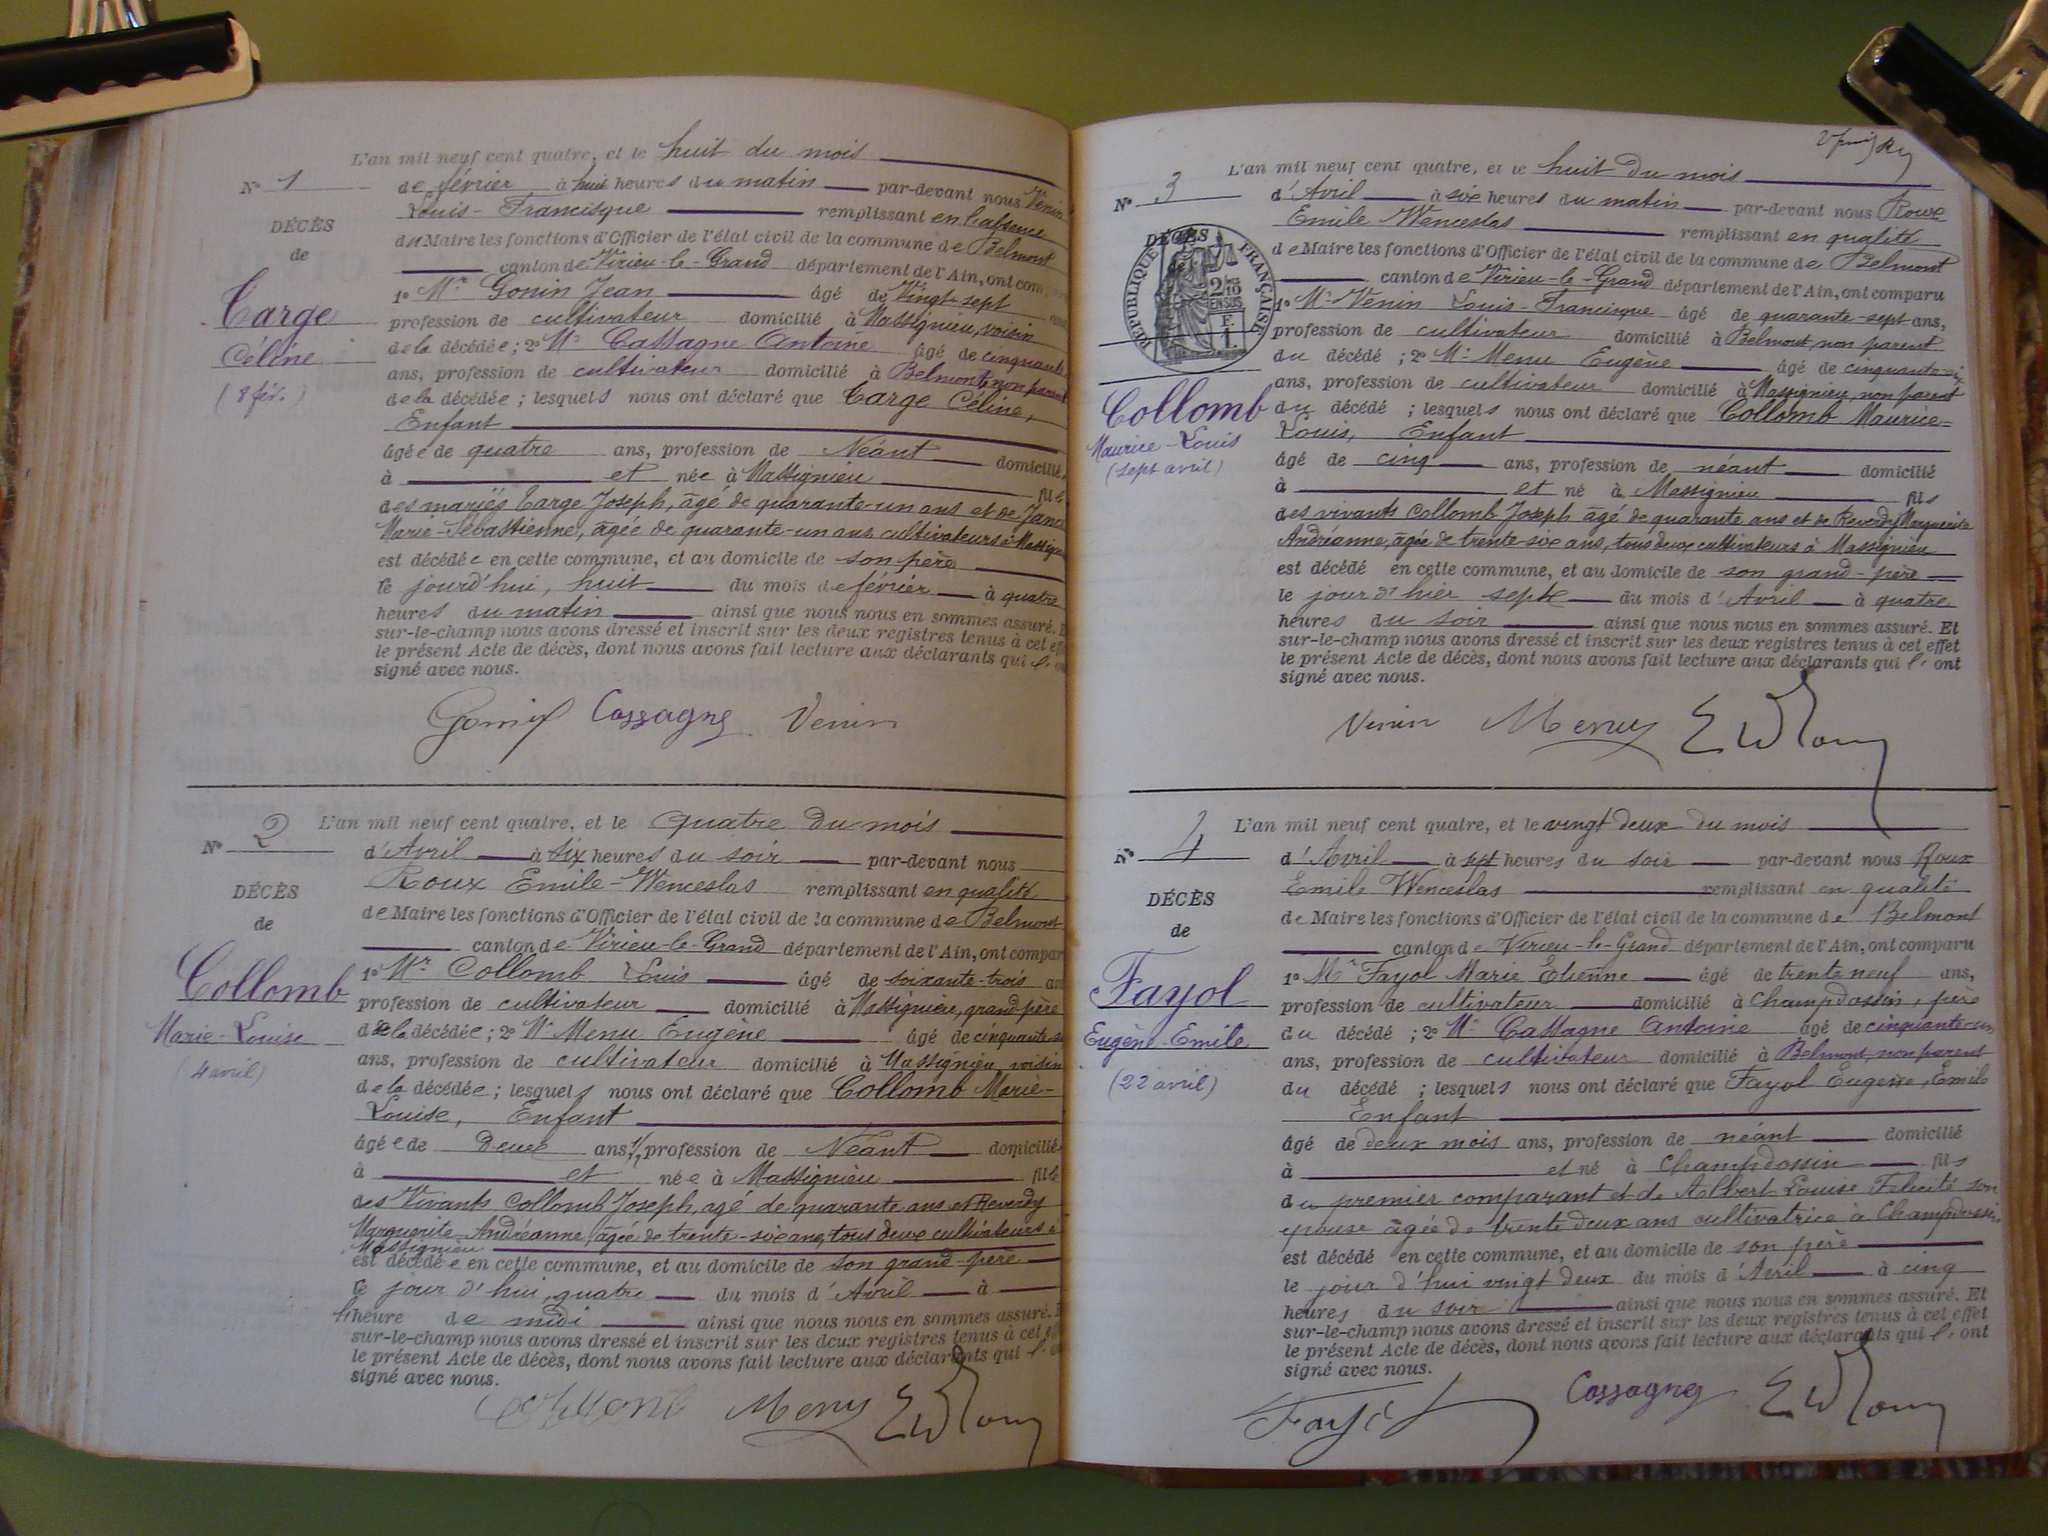 L'an mil neuf cent quatre, et le huit du mois
N° 1
de février à huit heures du matin par-devant nous Venin
Louis-Francisque remplissant en l'absence
du Maire les fonctions d'Officier de l'état civil de la commune de Belmont
canton de Virieu-le-Grand département de l'Ain, ont com
DÉCÈS
de
Carge
Céline
(8 fév.)
1° Mr Gonin Jean âgé de Vingt-sept
profession de cultivateur domicilié à Massignieu, voisin
de la décédée ; 2° Mr Cassagne Antoine âgé de cinquante
ans, profession de cultivateur domicilié à Belmont, non parent
de la décédée ; lesquels nous ont déclaré que Carge Céline,
Enfant
âgée de quatre ans, profession de Néant domicilié
à et née à Massignieu fille
des mariés Carge Joseph, âgé de quarante-un ans et de
Marie-Sébastienne, âgée de quarante-un ans cultivateurs à
est décédée en cette commune, et au domicile de son père
le jourd'hui, huit du mois de février à quatre
heures du matin ainsi que nous nous en sommes assuré.
sur-le-champ nous avons dressé et inscrit sur les deux registres tenus à cet
le présent Acte de décès, dont nous avons fait lecture aux déclarants qui l'
signé avec nous.
Gonin Cassagne Venin
L'an mil neuf cent quatre, et le quatre du mois
N° 2
d'Avril à six heures du soir par-devant nous
Roux Emile-Wenceslas remplissant en qualité
de Maire les fonctions d'Officier de l'état civil de la commune de Belmont
canton de Virieu-le-Grand département de l'Ain, ont compar
DÉCÈS
de
Collomb
Marie-Louise
(4 avril)
1° Mr Collomb Louis âgé de soixante-trois an
profession de cultivateur domicilié à Massignieu, grand-père
de la décédée ; 2° Mr Menu Eugène âgé de
ans, profession de cultivateur domicilié à Massignieu, voisin
de la décédée ; lesquels nous ont déclaré que Collomb Marie-
Louise, Enfant
âgée de Deux ans 1/2, profession de Néant domicilié
à et née à Massignieu fille
des Vivants Collomb Joseph, agé de quarante ans et Reverdy
Marguerite-Andréanne, âgée de trente-six ans, tous deux cultivateurs à
Massignieu
est décédée en cette commune, et au domicile de son grand-père
le jour d'hui, quatre du mois d'Avril à
heure de midi ainsi que nous nous en sommes assuré.
sur-le-champ nous avons dressé et inscrit sur les deux registres tenus à cet
le présent Acte de décès, dont nous avons fait lecture aux déclarants qui l'
signé avec nous.
Collomb Menu
L'an mil neuf cent quatre, et le huit du mois
N° 3
d'Avril à six heures du matin par-devant nous Roux
Emile Wenceslas remplissant en qualité
de Maire les fonctions d'Officier de l'état civil de la commune de Belmont
canton de Virieu-le-Grand département de l'Ain, ont comparu
DÉCÈS
RÉPUBLIQUE FRANÇAISE
2/10 EN SUS
Collomb
Maurice-Louis
(sept avril)
1° Mr Venin Louis-Francisque âgé de quarante-sept ans,
profession de cultivateur domicilié à Belmont, non parent
du décédé ; 2° Mr Menu Eugène âgé de cinquante-six
ans, profession de cultivateur domicilié à Massignieu, non parent
du décédé ; lesquels nous ont déclaré que Collomb Maurice-
Louis, Enfant
âgé de cinq ans, profession de néant domicilié
à et né à Massignieu fils
des vivants Collomb Joseph âgé de quarante ans et de Reverdy Marguerite
Andréanne, âgée de trente-six ans, tous deux cultivateurs à Massignieu
est décédé en cette commune, et au domicile de son grand-père
le jour d'hier sept du mois d'Avril à quatre
heures du soir ainsi que nous nous en sommes assuré. Et
sur-le-champ nous avons dressé et inscrit sur les deux registres tenus à cet effet
le présent Acte de décès, dont nous avons fait lecture aux déclarants qui l'ont
signé avec nous.
Venin Menu
L'an mil neuf cent quatre, et le vingt deux du mois
N° 4
d'Avril à sept heures du soir par-devant nous Roux
Emile Wenceslas remplissant en qualité
de Maire les fonctions d'Officier de l'état civil de la commune de Belmont
canton de Virieu-le-Grand département de l'Ain, ont comparu
DÉCÈS
de
Fayol
Eugène-Emile
(22 avril)
1° Mr Fayol Marie Etienne âgé de trente neuf ans,
profession de cultivateur domicilié à Champdossin, père
du décédé ; 2° Mr Cassagne Antoine âgé de cinquante-un
ans, profession de cultivateur domicilié à Belmont, non parent
du décédé ; lesquels nous ont déclaré que Fayol Eugène, Emile
Enfant
âgé de deux mois ans, profession de néant domicilié
à et né à Champdossin fils
du premier comparant et de Albert Louise Félicité son
epouse âgée de trente deux ans cultivatrice à Champdossin
est décédé en cette commune, et au domicile de son père
le jour d'hui vingt deux du mois d'Avril à cinq
heures du soir ainsi que nous nous en sommes assuré. Et
sur-le-champ nous avons dressé et inscrit sur les deux registres tenus à cet effet
le présent Acte de décès, dont nous avons fait lecture aux déclarants qui l'ont
signé avec nous.
Fayol Cassagne